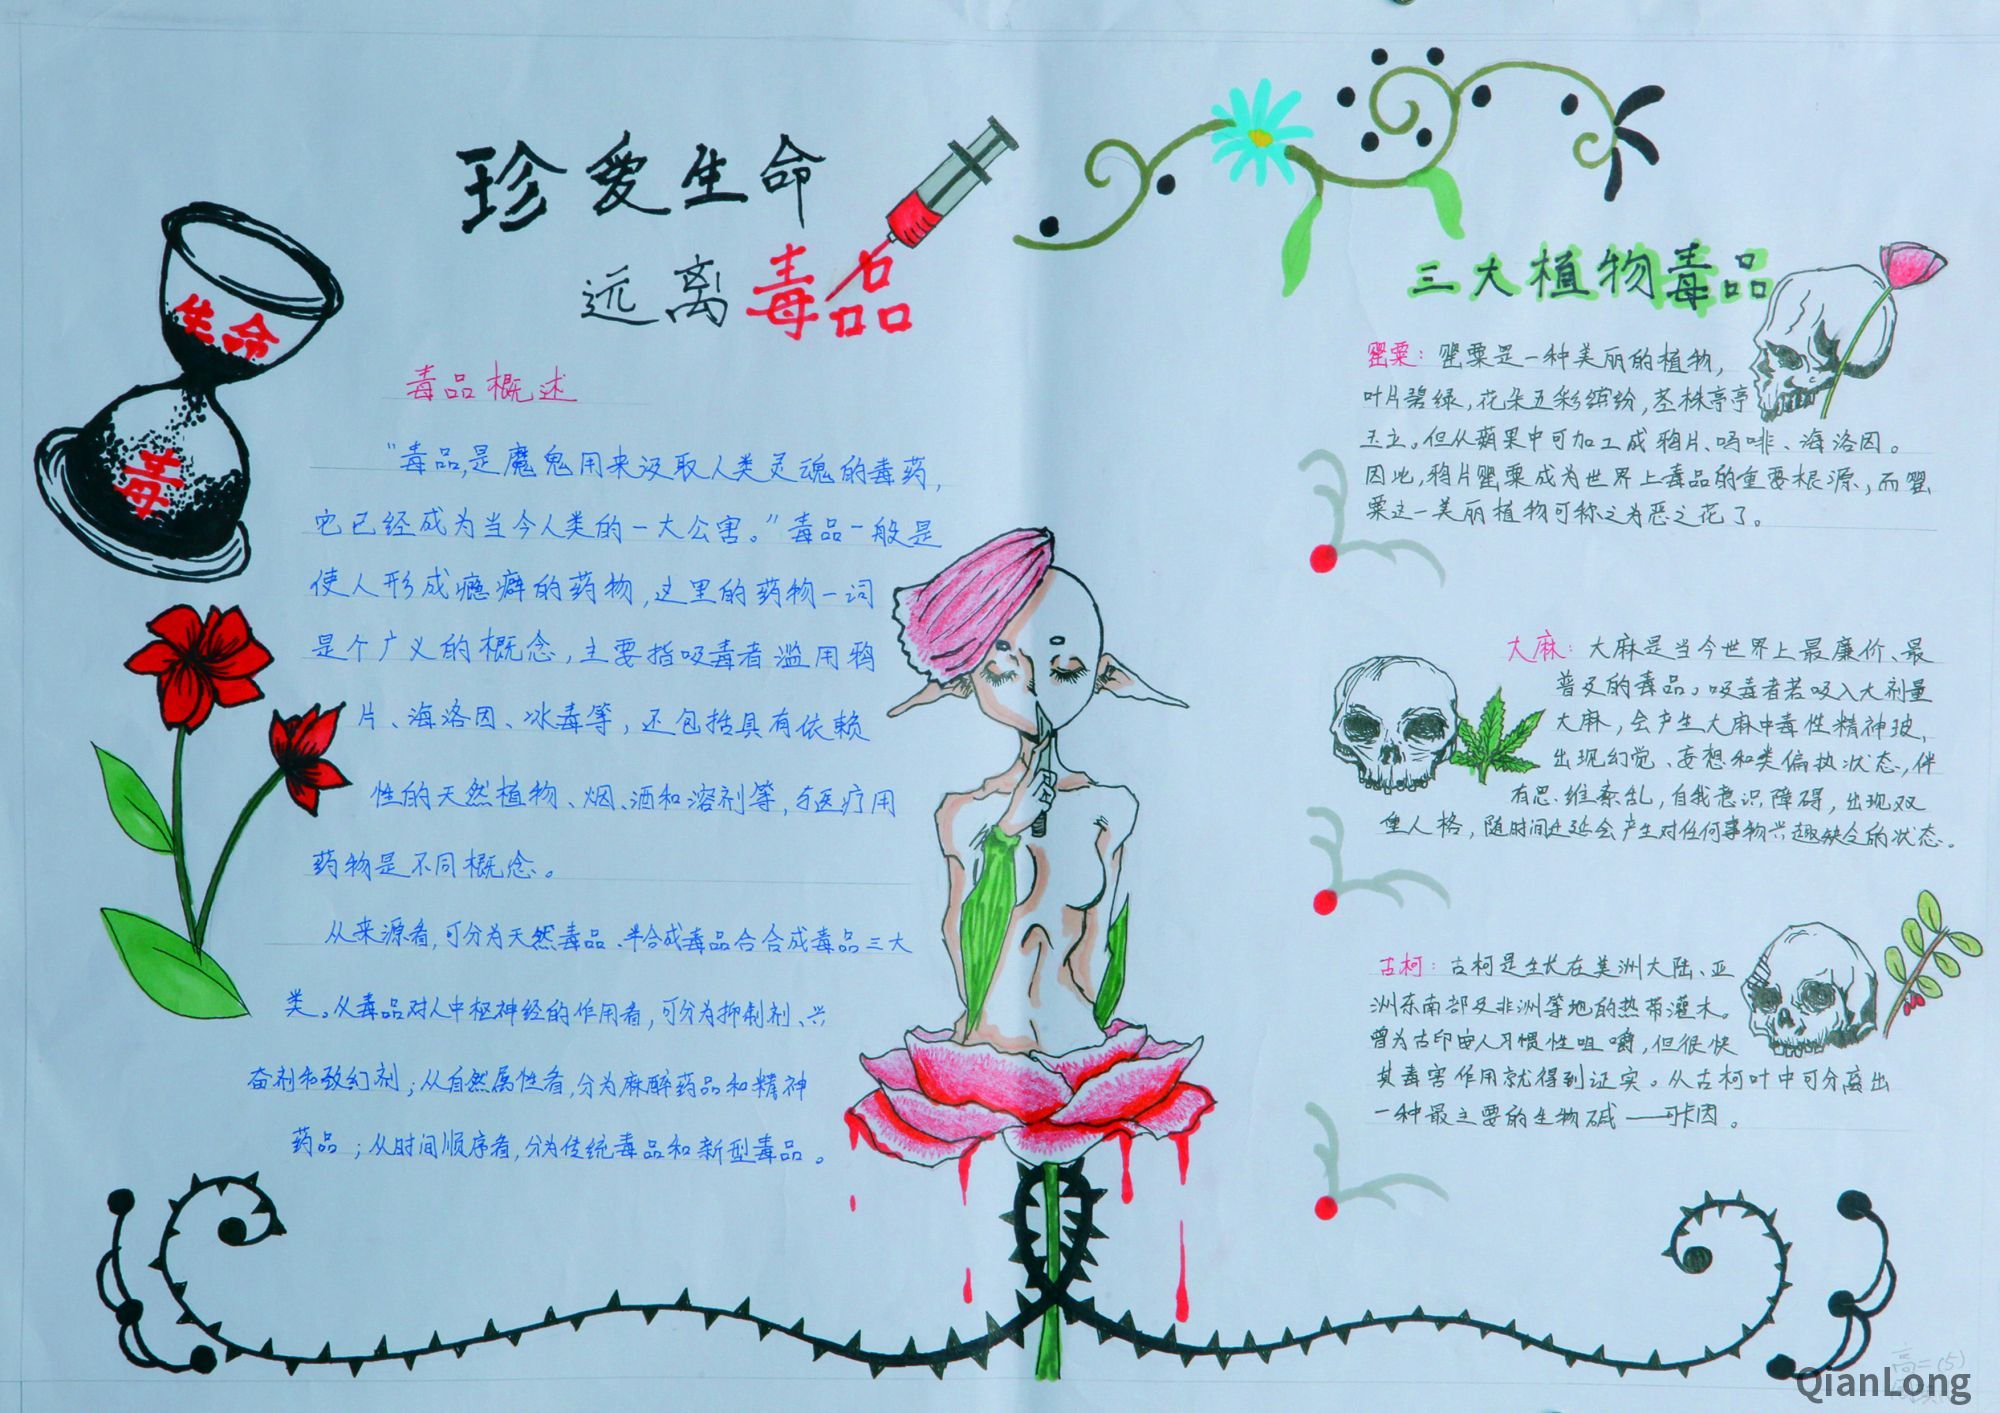 珍爱生命
远离毒品
生命
毒
毒品概述
"毒品,是魔鬼用来汲取人类灵魂的毒药,
它已经成为当今人类的一大公害。"毒品一般是
使人形成瘾癖的药物,这里的药物一词
是个广义的概念,主要指吸毒者滥用鸦
片、海洛因、冰毒等,还包括具有依赖
性的天然植物、烟、酒和溶剂等,与医疗用
药物是不同概念。
从来源看,可分为天然毒品、半合成毒品合合成毒品三大
类。从毒品对人中枢神经的作用看,可分为抑制剂、兴
奋剂和致幻剂;从自然属性看,分为麻醉药品和精神
药品;从时间顺序看,分为传统毒品和新型毒品。
三大植物毒品
罂粟:罂粟是一种美丽的植物,
叶片碧绿,花朵五彩缤纷,茎株亭亭
玉立。但从蒴果中可加工成鸦片、吗啡、海洛因。
因此,鸦片罂粟成为世界上毒品的重要根源,而罂
粟这一美丽植物可称之为恶之花了。
大麻:大麻是当今世界上最廉价、最
普及的毒品。吸毒者若吸入大剂量
大麻,会产生大麻中毒性精神,
出现幻觉、妄想和类偏执状态,伴
有思维紊乱,自我意识障碍,出现双
重人格,随时间迁延会产生对任何事物兴趣缺乏的状态。
古柯:古柯是生长在美洲大陆、亚
洲东南部及非洲等地的热带灌木。
曾为古印宙人习惯性咀嚼,但很快
其毒害作用就得到证实。从古柯叶中可分离出
一种最主要的生物碱——可卡因。
高二(5)
QianLong